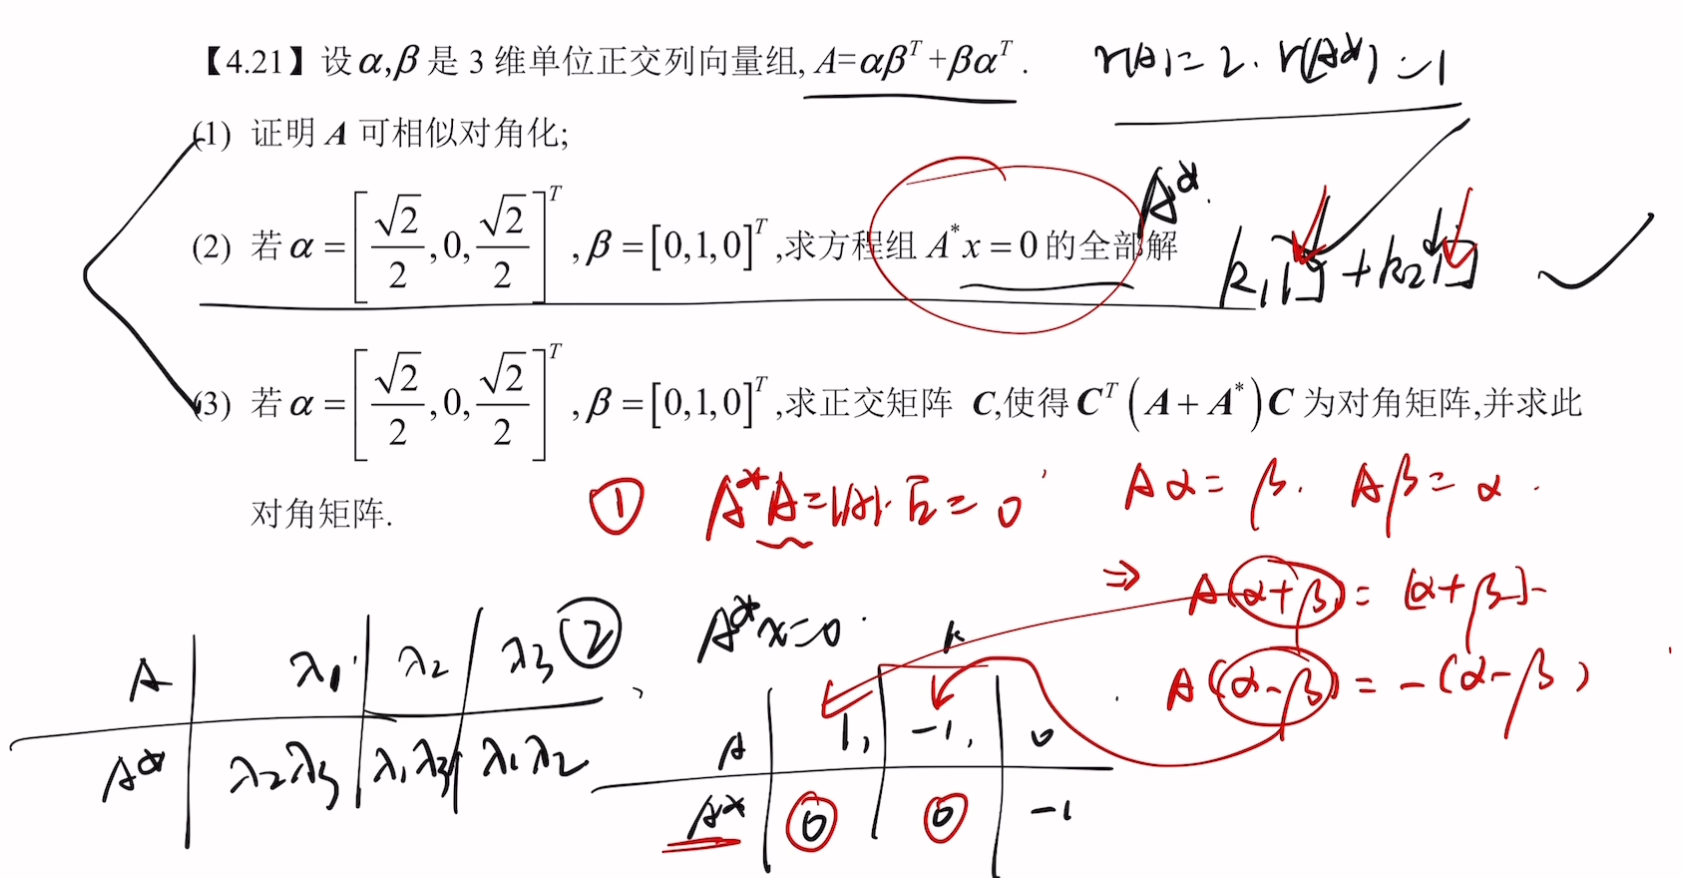 【4.21】设α,β是 3 维单位正交列向量组, A=αβ^T+βα^T. r(A)=2. r(A*)=1
(1) 证明 A 可相似对角化;
A*.
(2) 若α=[√2/2,0,√2/2]^T,β=[0,1,0]^T,求方程组 A*x=0的全部解
k₁[ ]+k₂[ ] ✓
(3) 若α=[√2/2,0,√2/2]^T,β=[0,1,0]^T,求正交矩阵 C,使得C^T(A+A*)C 为对角矩阵,并求此
对角矩阵.
① A*A=|A|·E=0 Aα=β. Aβ=α.
⇒ A(α+β)=(α+β).
② A*x=0.
A(α-β)=-(α-β)
A λ₁ λ₂ λ₃
A* λ₂λ₃ λ₁λ₃ λ₁λ₂
A 1, -1, 0
A* 0 0 -1